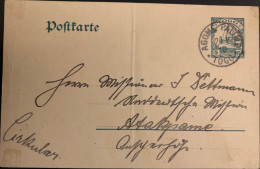 Postkarte
AGOME-PALIME
TOGO
Herrn Missionar J. Dettmann
Norddeutsche Mission
Atakpame
Cirkular.